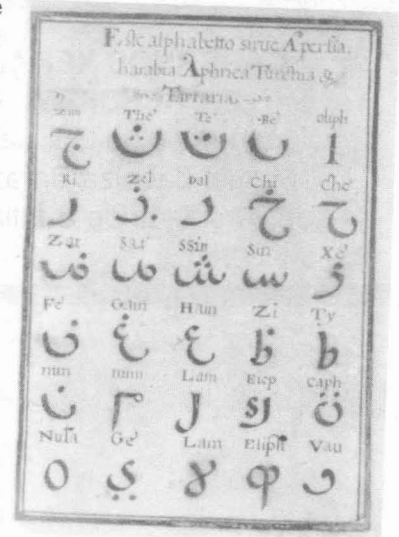 Este alphabetto sirue Apersia.
harabia Aphrica Turchia &
Tartaria
The Te Be Oliph
ج ث ت ب ا
Ri Zel Dal Chi Che
ر ذ د خ ح
Zat Sat SSin Sin Xe
ض ص ش س ز
Fe Gain Hain Zi Ty
ف غ ع ظ ط
nun mim Lam caph
ن م ل ق
Nusa Ge Lam Eliph Vau
ه ي لا و